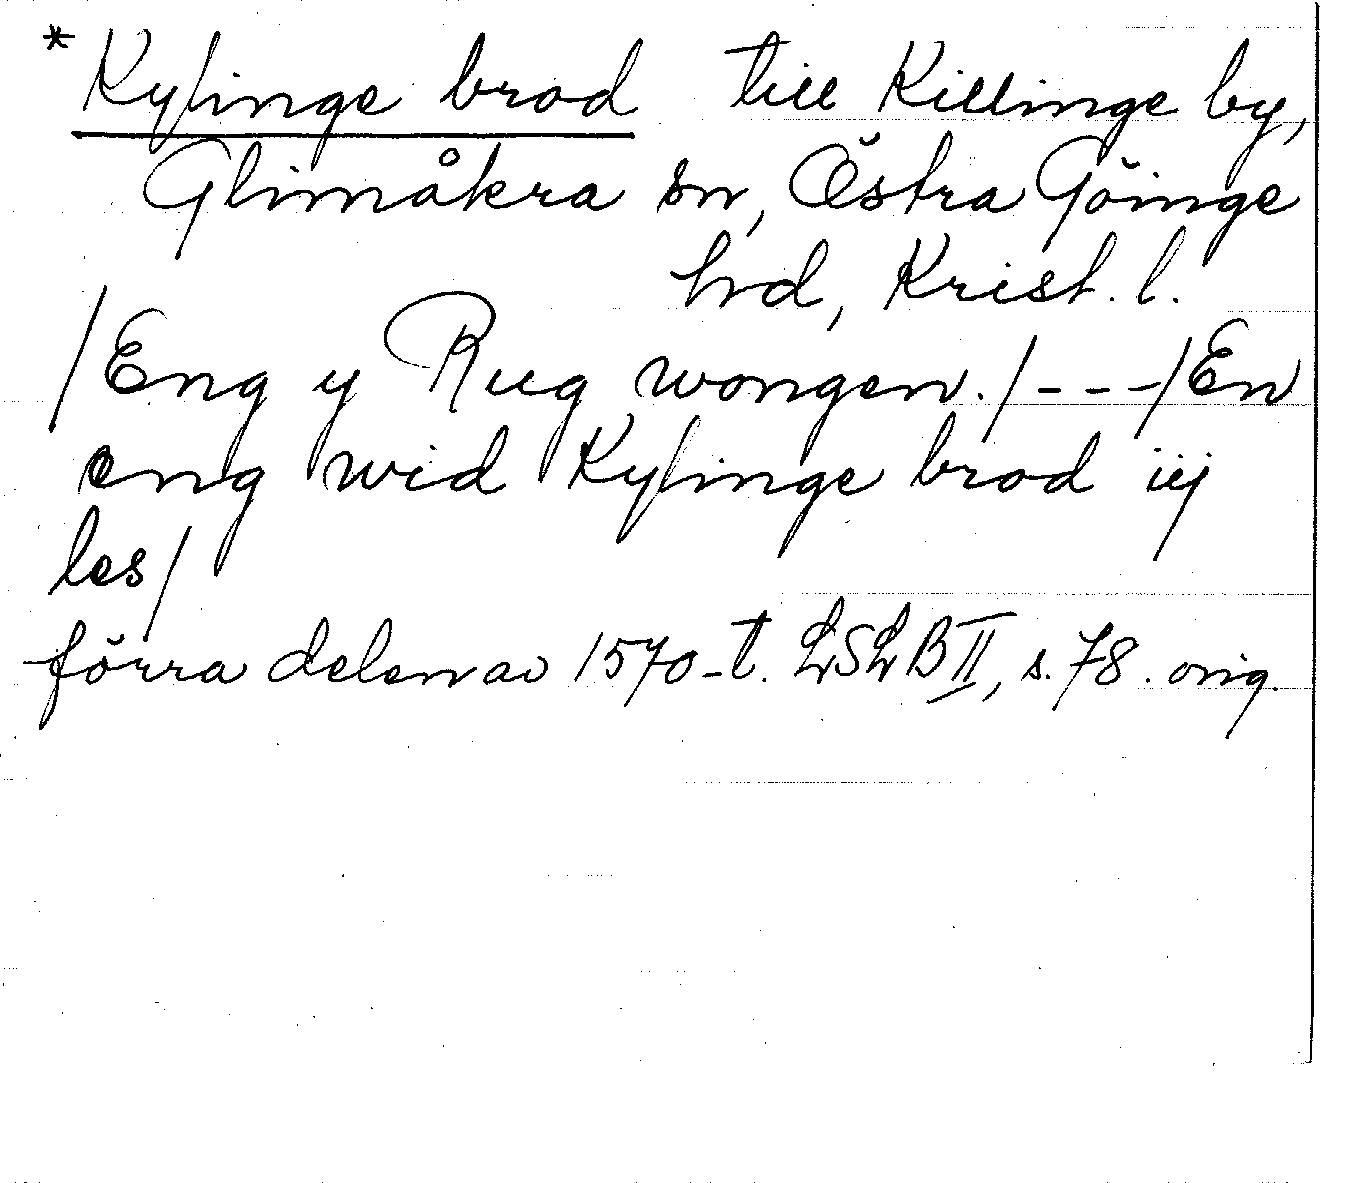 * Kylinge brod till Killinge by,
Glimåkra sn, Östra Göinge
hrd, Krist. l.
/Eng y Rug wongen./---/En
eng wid Kylinge brod iij
les/
förra delen av 1570-t. LSLB II, s. 78. orig.